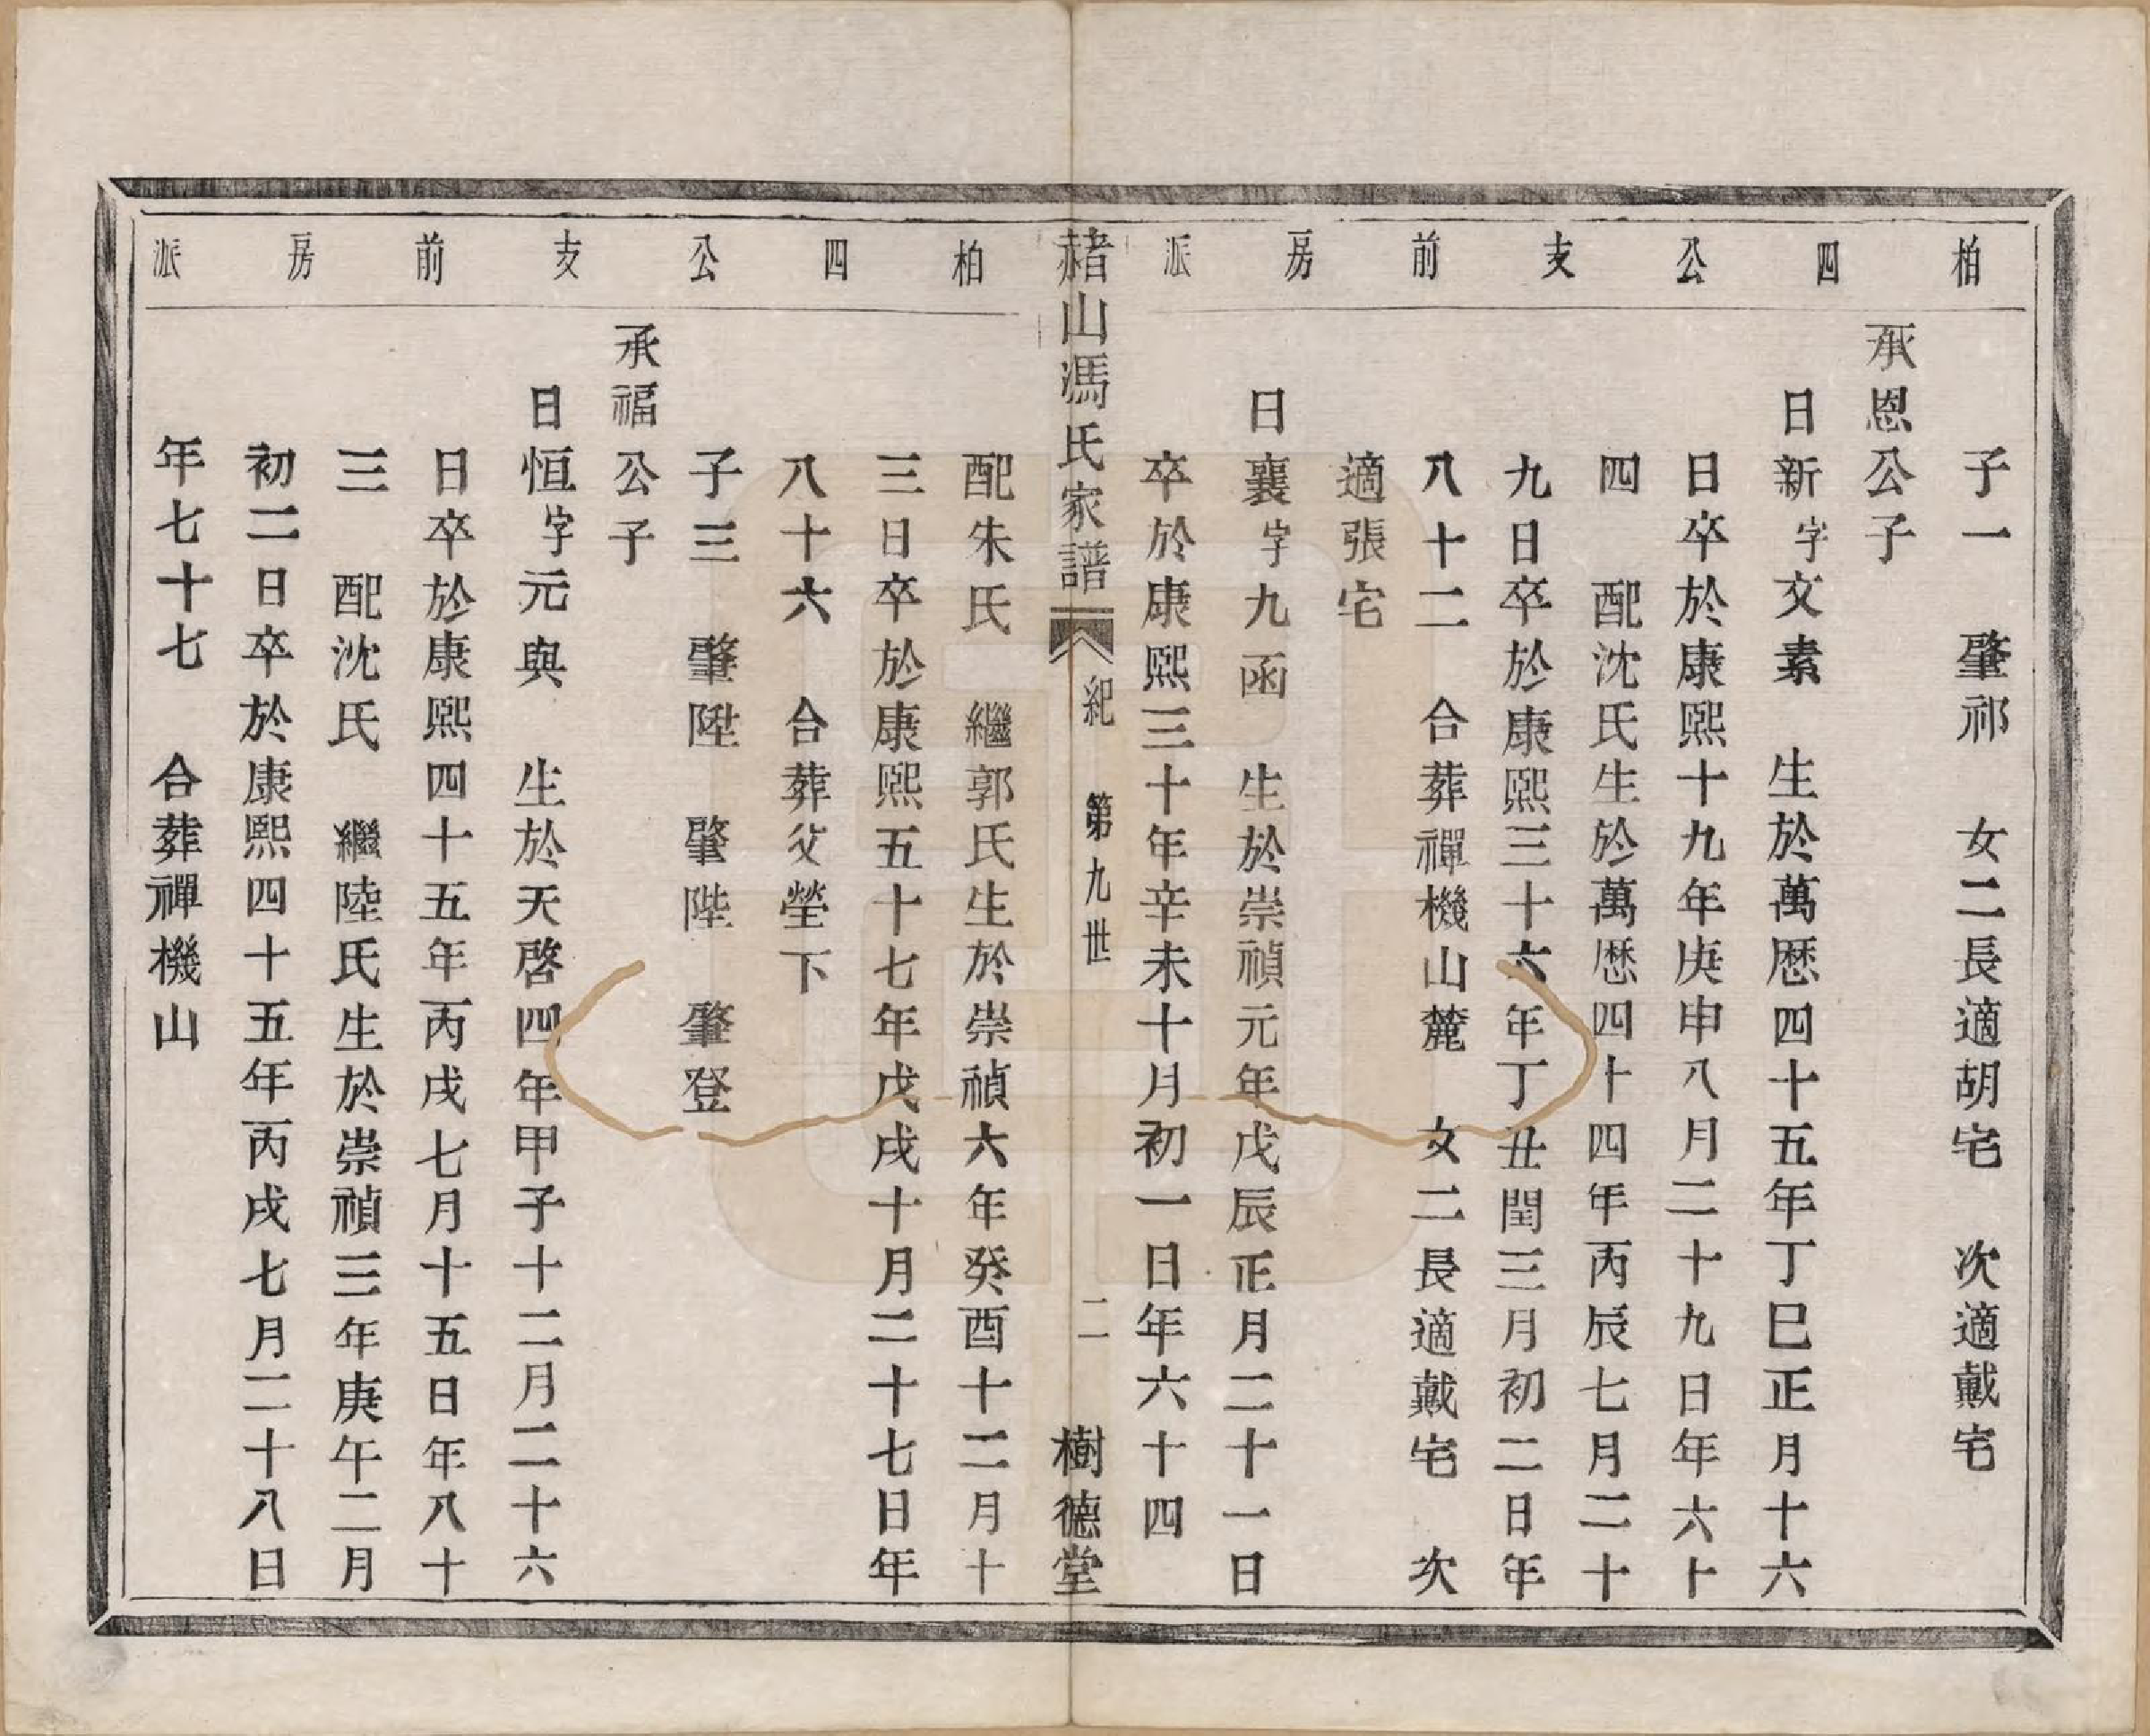 柏四公支前房派
子一　肇祁　女二長適胡宅　次適戴宅
承恩公子
日新字文素　生於萬厯四十五年丁巳正月十六
日卒於康熙十九年庚申八月二十九日年六十
四　配沈氏生於萬厯四十四年丙辰七月二十
九日卒於康熙三十六年丁丑閏三月初二日年
八十二　合葬禪機山麓　女二長適戴宅　次
適張宅
日襄字九函　生於崇禎元年戊辰正月二十一日
卒於康熙三十年辛未十月初一日年六十四
赭山馮氏家譜　紀　第九世　二　樹德堂
柏四公支前房派
配朱氏　繼郭氏生於崇禎六年癸酉十二月十
三日卒於康熙五十七年戊戌十月二十七日年
八十六　合葬父塋下
子三　肇陞　肇陛　肇登
承福公子
日恒字元與　生於天啓四年甲子十二月二十六
日卒於康熙四十五年丙戌七月十五日年八十
三　配沈氏　繼陸氏生於崇禎三年庚午二月
初二日卒於康熙四十五年丙戌七月二十八日
年七十七　合葬禪機山